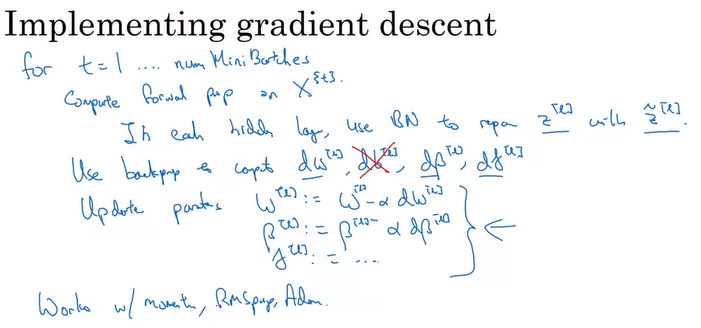 Implementing gradient descent
for t = 1 .... num MiniBatches
Compute forward prop on X^{t}.
In each hidden layer, use BN to replace z^[l] with z̃^[l].
Use backprop to compute dw^[l], db^[l], dβ^[l], dγ^[l]
Update parameters w^[l] := w^[l] - α dw^[l]
β^[l] := β^[l] - α dβ^[l]
γ^[l] := ....
Works w/ momentum, RMSprop, Adam.